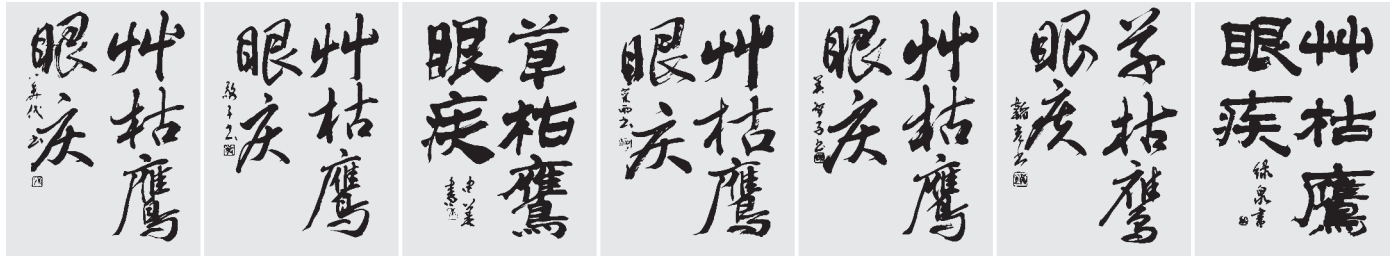 艸枯鷹
眼疾
美代書
艸枯鷹
眼疾
草枯鷹
眼疾
艸枯鷹
眼疾
艸枯鷹
眼疾
美智子書
草枯鷹
眼疾
艸枯鷹
眼疾
緑泉書